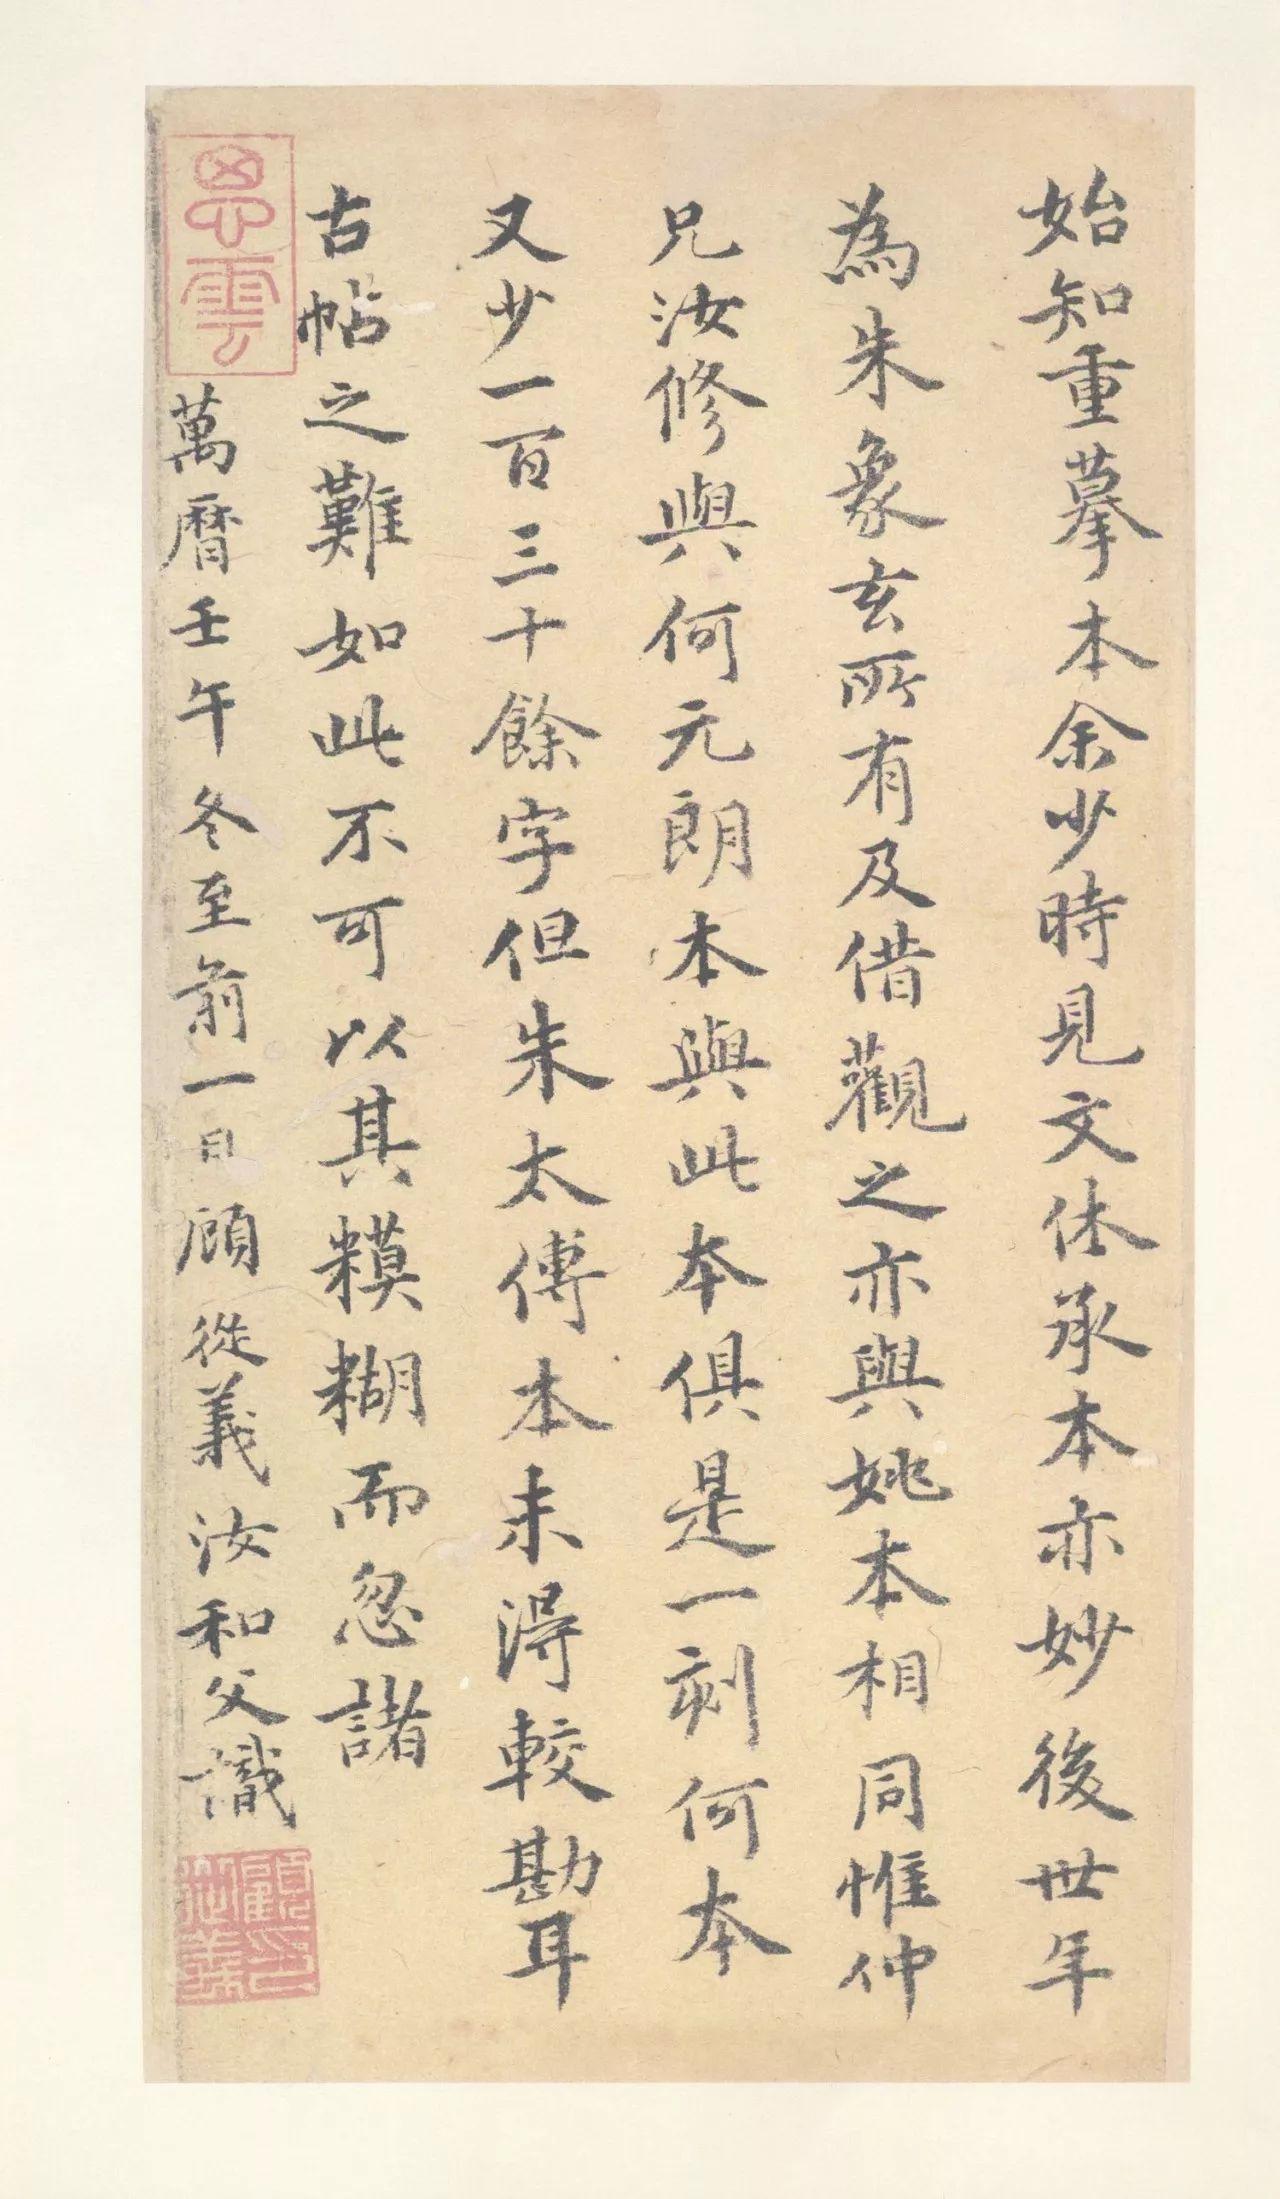 始知重摹本余少時見文休承本亦妙後世年
為朱象玄所有及借觀之亦與姚本相同惟仲
兄汝修與何元朗本與此本俱是一刻何本
又少一百三十餘字但朱太傅本未得較勘耳
古帖之難如此不可以其糢糊而忽諸
萬曆壬午冬至前一日顧從義汝和父識
思雲
顧從義印